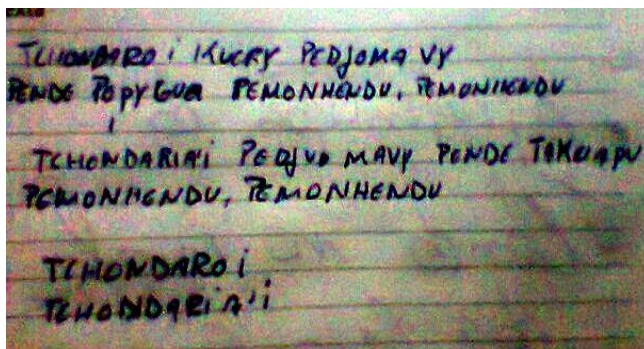 TCHONDARO i KUERY PEDJOMA VY
PENDE POPYGUA PEMONHENDU, PEMONHENDU
TCHONDARIA'i PEDJUO MAVY PENDE TAKUAPU
PEMONHENDU, PEMONHENDU
TCHONDARO i
TCHONDARIA'i